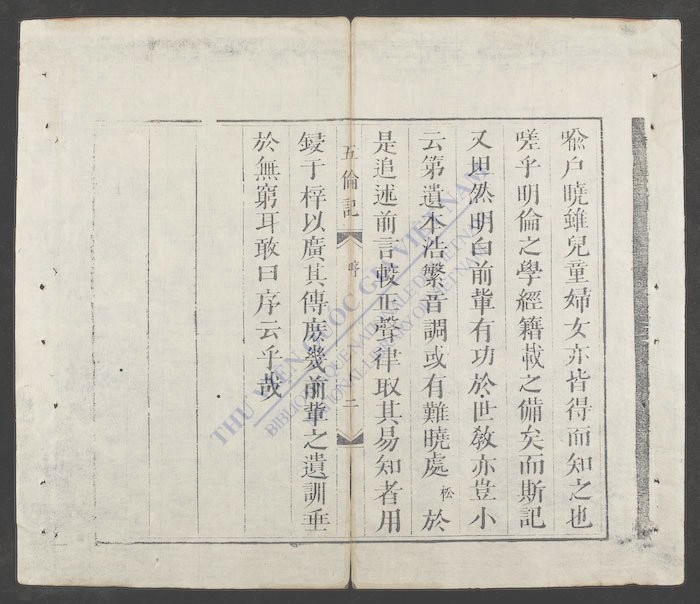 喩户曉雖兒童婦女亦皆得而知之也
嗟乎明倫之學經籍載之備矣而斯記
又坦然明白前輩有功於世敎亦豈小
云第遺本浩繁音調或有難曉處松於
是追述前言較正聲律取其易知者用
五倫記 序 二
鋟于梓以廣其傳庶幾前輩之遺訓垂
於無窮耳敢曰序云乎哉
THƯ VIỆN QUỐC GIA VIỆT NAM
BIBLIOTHEQUE NATIONALE DU VIETNAM
NATIONAL LIBRARY OF VIETNAM